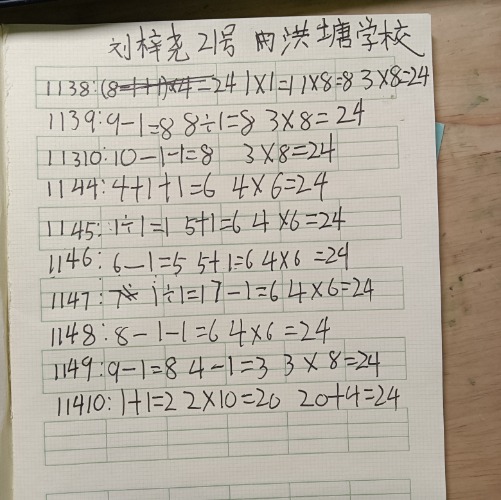 刘梓尧 21号 内洪塘学校
1138: (8-1+1)×4=24 1×1=1 1×8=8 3×8=24
1139: 9-1=8 8÷1=8 3×8=24
11310: 10-1-1=8 3×8=24
1144: 4+1+1=6 4×6=24
1145: 1÷1=1 5+1=6 4×6=24
1146: 6-1=5 5+1=6 4×6=24
1147: 7× 1÷1=1 7-1=6 4×6=24
1148: 8-1-1=6 4×6=24
1149: 9-1=8 4-1=3 3×8=24
11410: 1+1=2 2×10=20 20+4=24